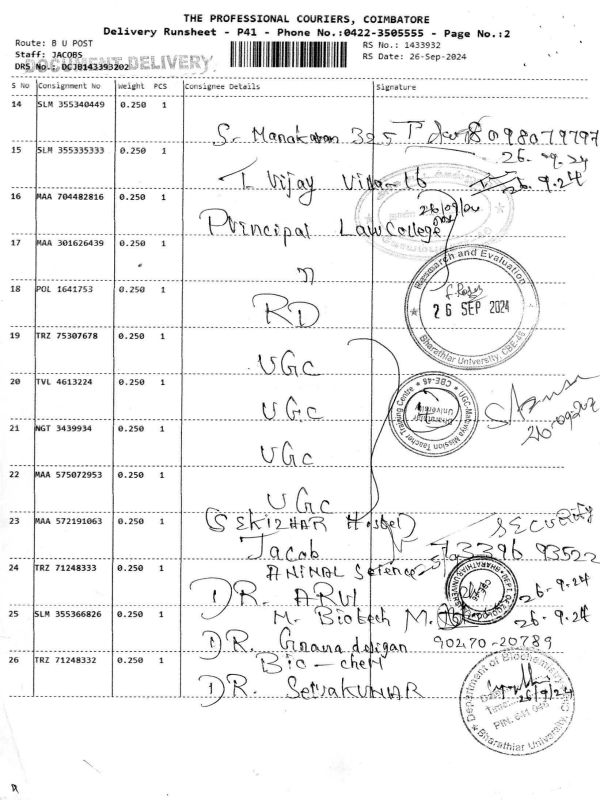 THE PROFESSIONAL COURIERS, COIMBATORE
Delivery Runsheet - P41 - Phone No.:0422-3505555 - Page No.:2
Route: B U POST
RS No.: 1433932
Staff: JACOBS
RS Date: 26-Sep-2024
DOCUMENT DELIVERY
DRS No.: DCJB143393202
S No Consignment No Weight PCS Consignee Details Signature
14 SLM 355340449 0.250 1
S. Manakaran 325
26.9.24
15 SLM 355335333 0.250 1
T. Vijay Vida-16
26.9.24
16 MAA 704482816 0.250 1
26/09/24
Principal Law College
17 MAA 301626439 0.250 1
Research and Evaluation
26 SEP 2024
Bharathiar University, CBE-46
18 POL 1641753 0.250 1
RD
19 TRZ 75307678 0.250 1
UGC
20 TVL 4613224 0.250 1
UGC
UGC-Malaviya Mission Teacher Training Centre
Bharathiar University
CBE-46
21 NGT 3439934 0.250 1
UGC
22 MAA 575072953 0.250 1
UGC
23 MAA 572191063 0.250 1
(SEKIZHAR Hostel) SECURITY
Jacob
24 TRZ 71248333 0.250 1
ANIMAL Science
DR. ARUL 26-9.24
25 SLM 355366826 0.250 1
M. Biotech 26.9.24
DR. Gnana 90470-20789
26 TRZ 71248332 0.250 1
Bio-chem
DR. Selvakumar
Department of Biochemistry
26/9/24
PIN. 641 046
Bharathiar University